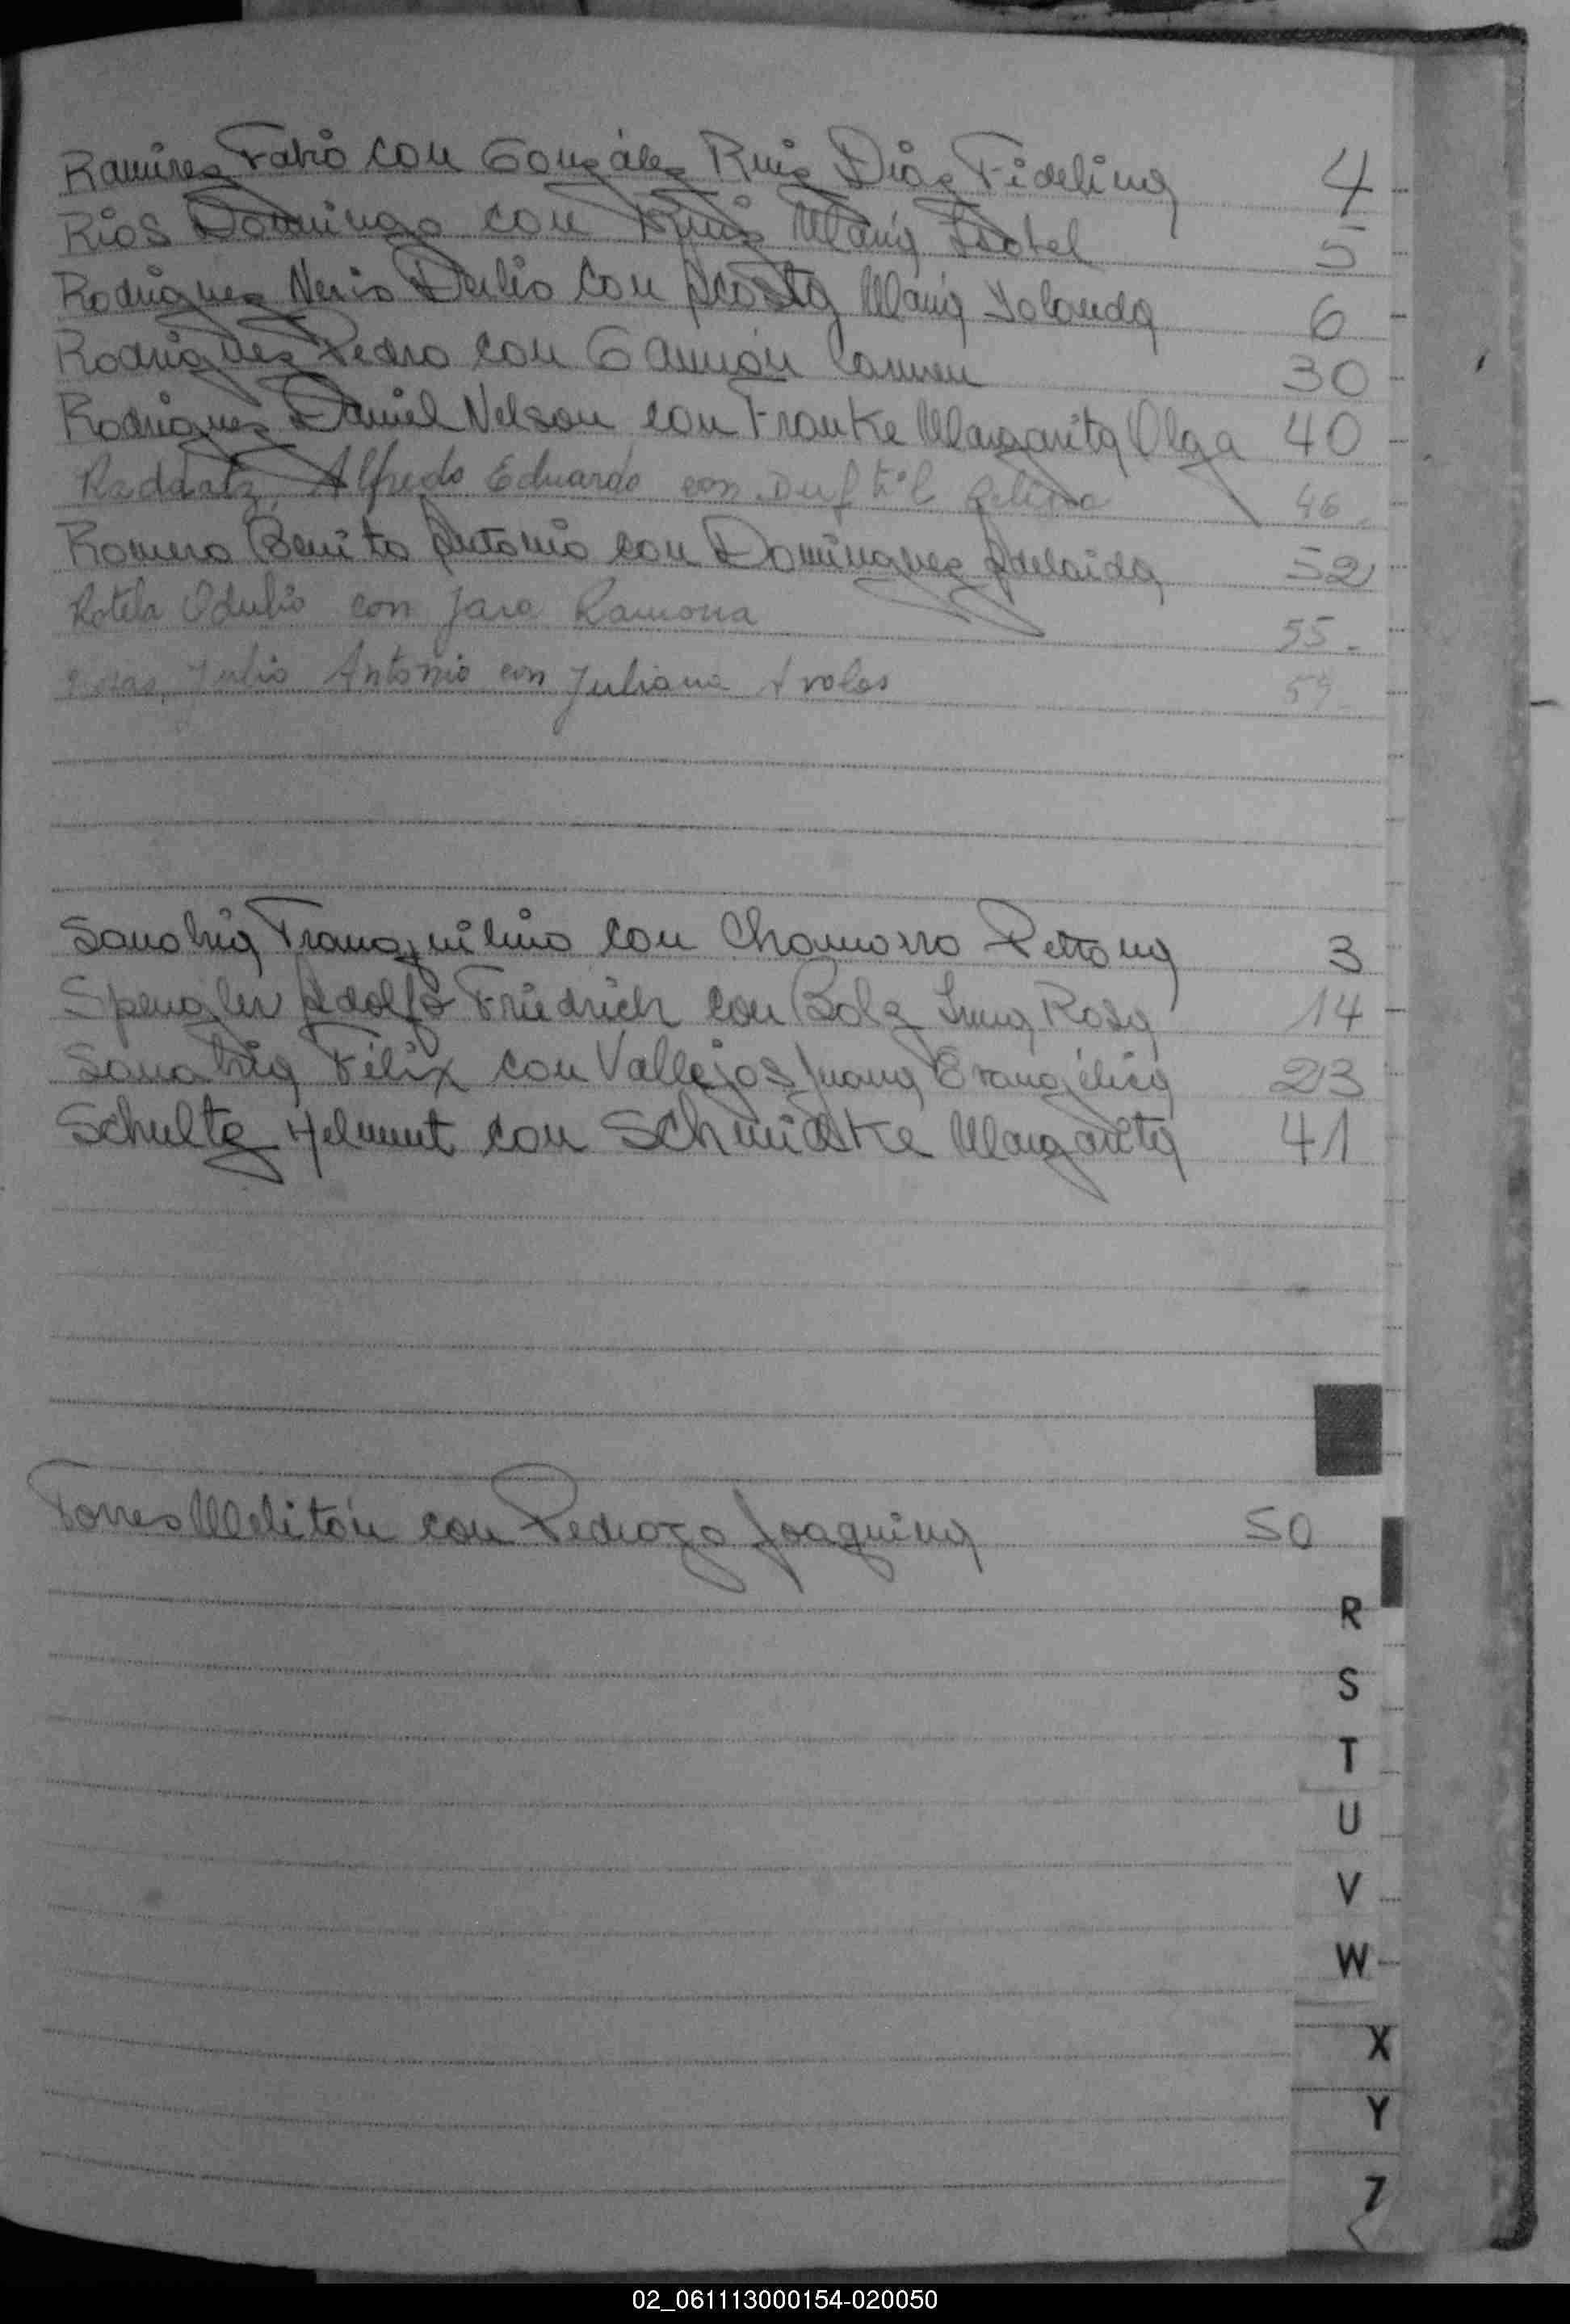 Ramirez Fabio con González Ruiz Diaz Fidelina 4
Rios Domingo con Ruiz María Isabel 5
Rodriguez Nerio Derlio con Acosta María Yolanda 6
Rodriguez Pedro con Gamión Carmen 30
Rodriguez Daniel Nelson con Franke Margarita Olga 40
Raddatz Alfredo Eduardo con 46
Romero Benito Antonio con Dominguez Adelaida 52
Rotela Odulio con Jara Ramona 55.
Julio Antonio con Juliana Avalos
Sanabria Tranquilino con Chamorro Petrona 3
Spengler Adolfo Friedrich con Bolz Irma Rosa 14
Sanabria Félix con Vallejos Juana Evangélica 23
Schultz Helmut con Schmidtke Margarita 41
Torres Melitón con Pedrozo Joaquina 50
R
S
T
U
V
W
X
Y
Z
02_061113000154-020050